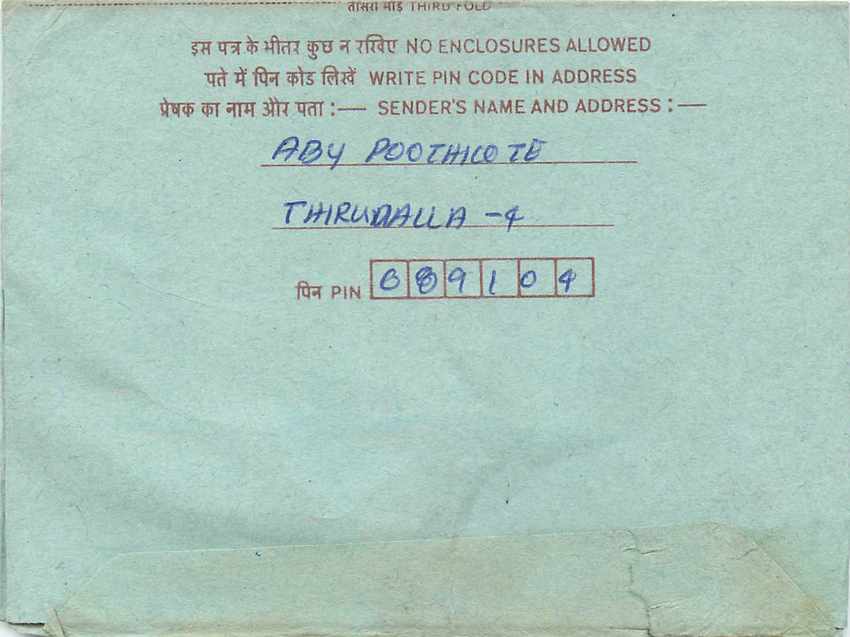 तीसरा मोड़ THIRD FOLD
इस पत्र के भीतर कुछ न रखिए NO ENCLOSURES ALLOWED
पते में पिन कोड लिखें WRITE PIN CODE IN ADDRESS
प्रेषक का नाम और पता :— SENDER'S NAME AND ADDRESS :—
ABY POOTHICOTE
THIRUVALLA -4
पिन PIN 689104